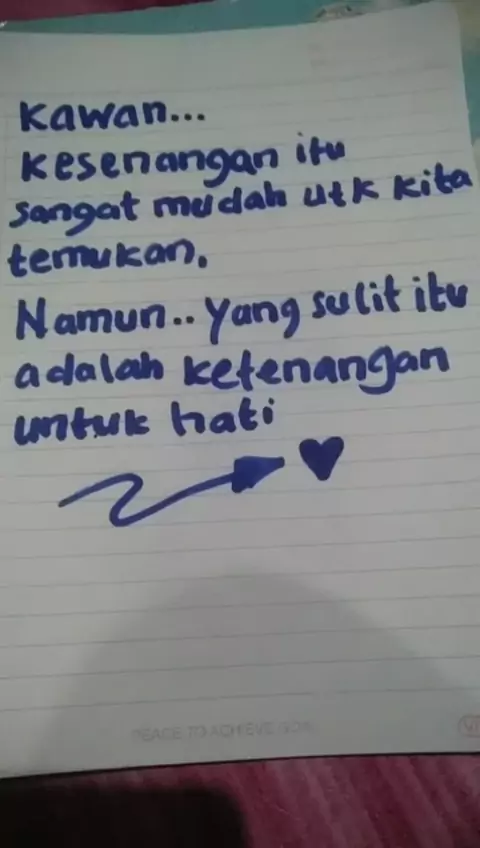 Kawan...
kesenangan itu
sangat mudah utk kita
temukan.
Namun.. yang sulit itu
adalah ketenangan
untuk hati